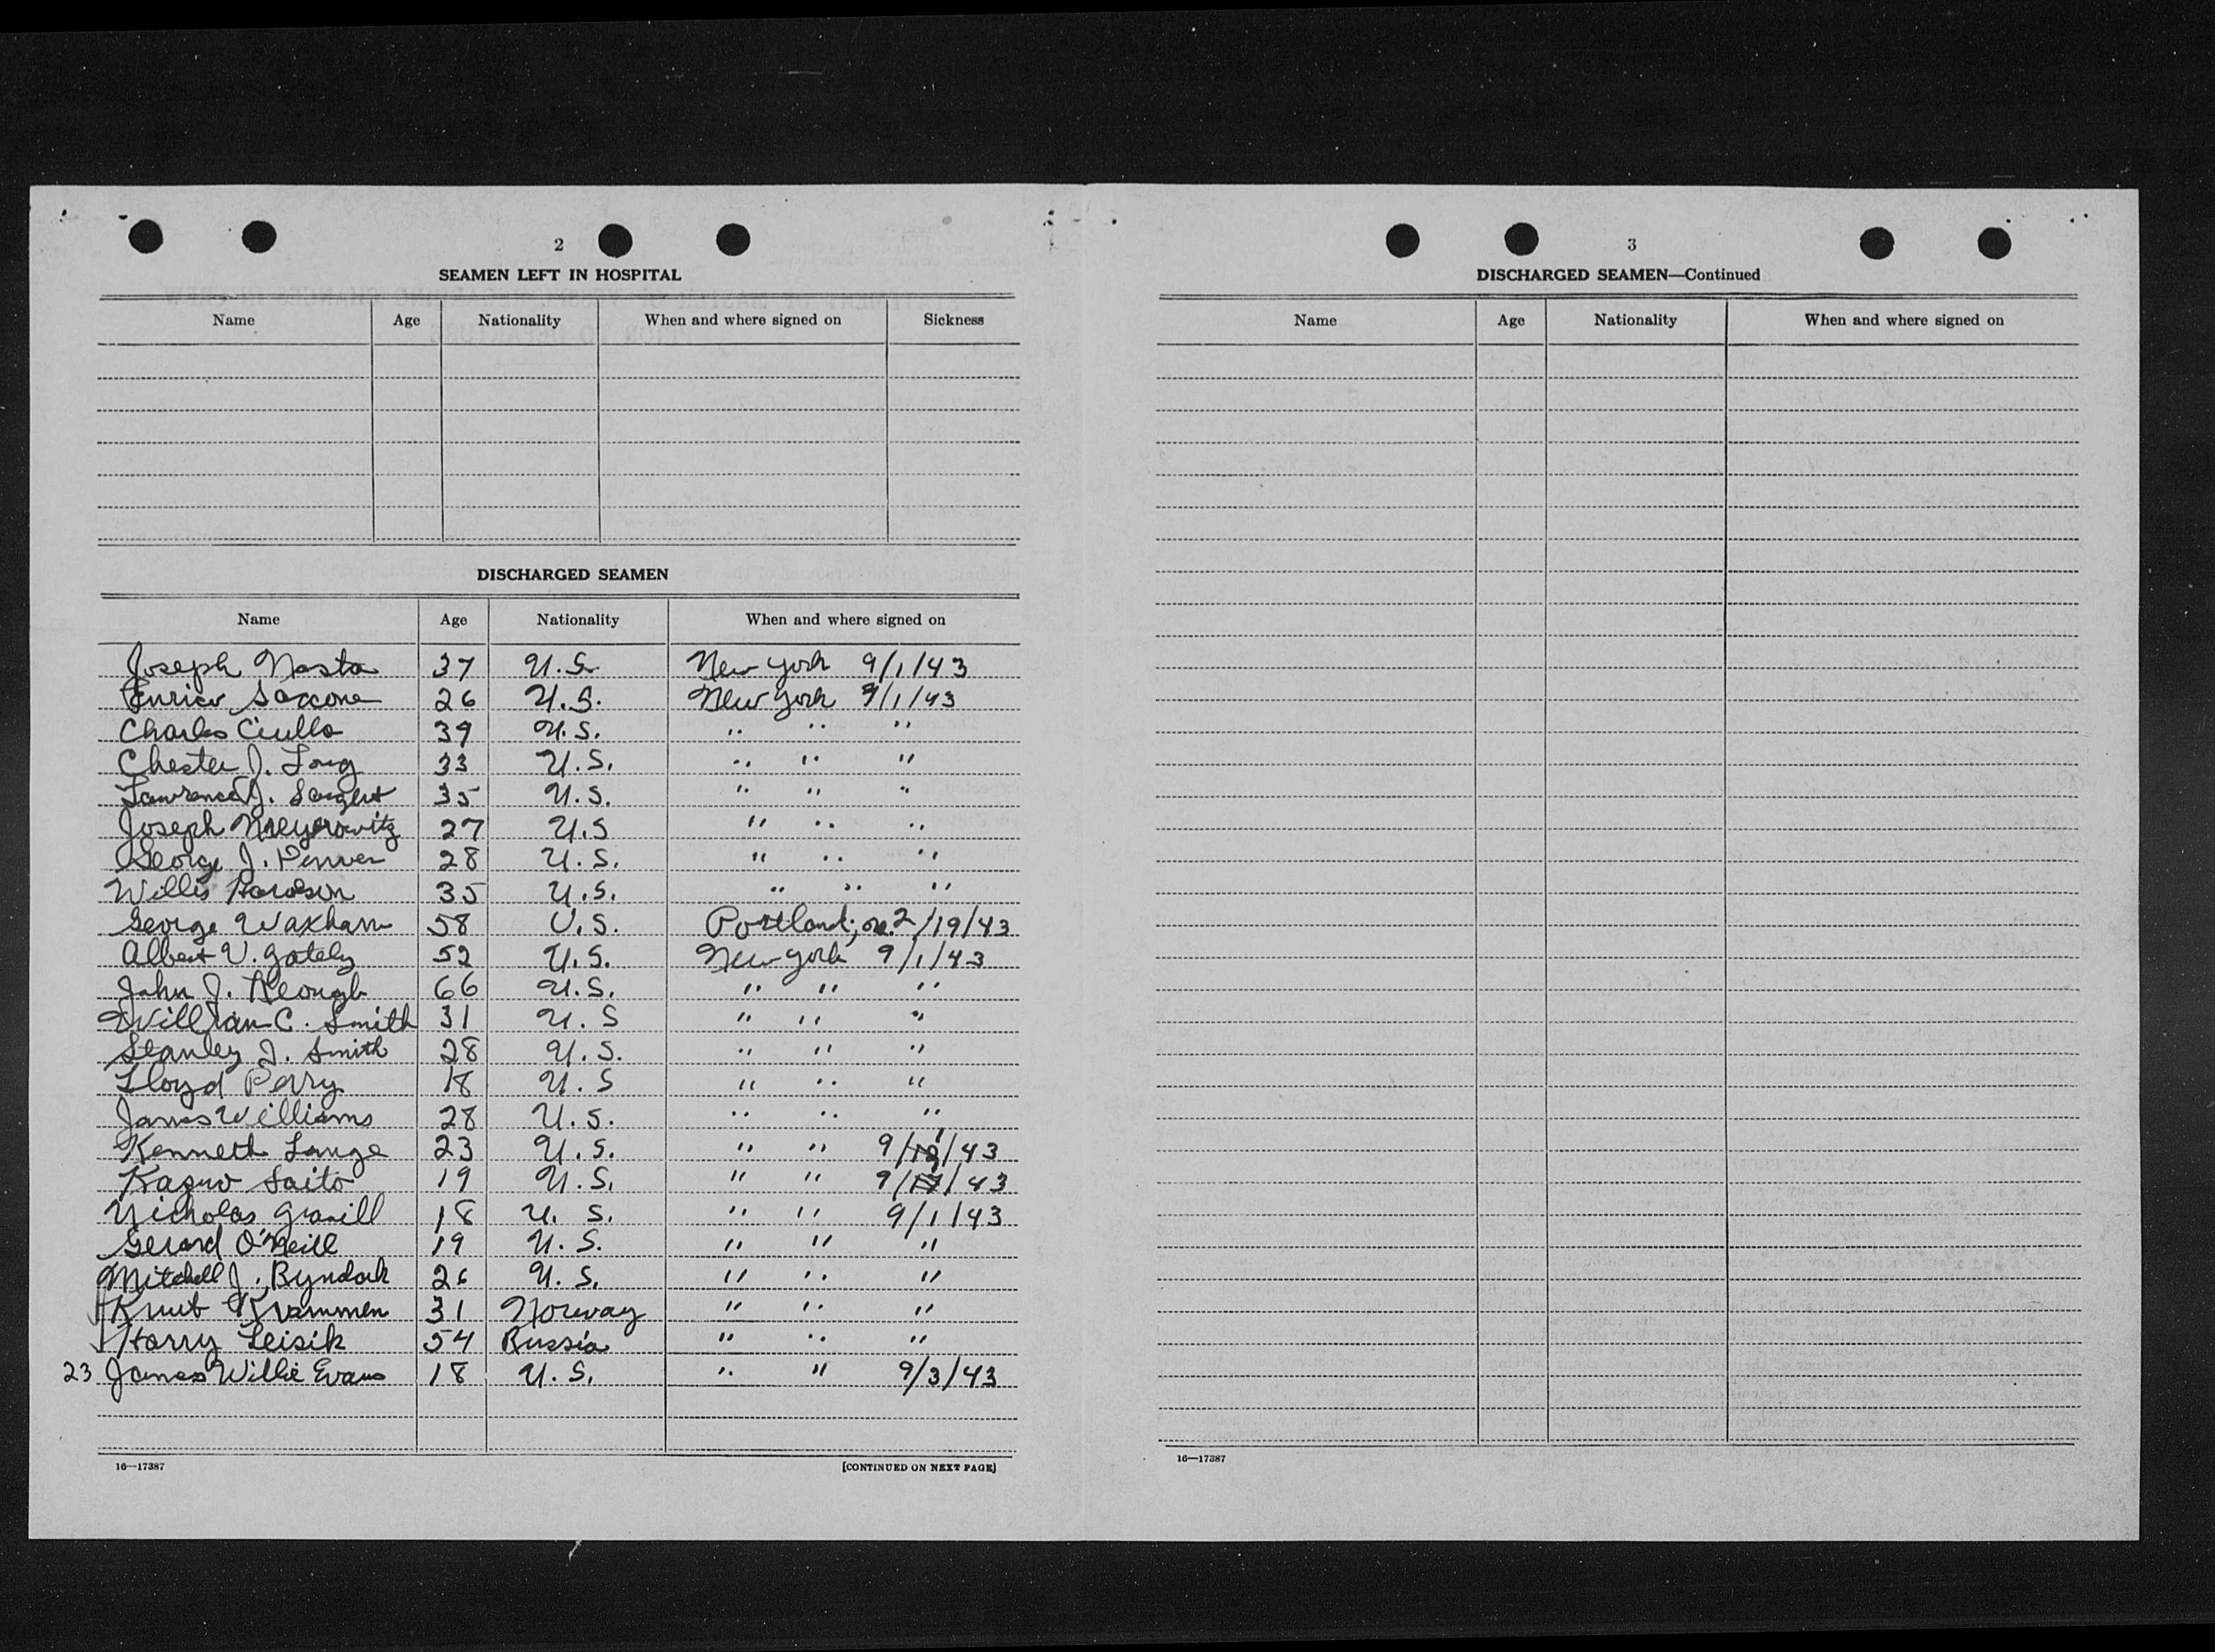 2
SEAMEN LEFT IN HOSPITAL
Name Age Nationality When and where signed on Sickness
DISCHARGED SEAMEN
Name Age Nationality When and where signed on
Joseph Nasta 37 U.S. New York 9/1/43
Enrico Saccone 26 U.S. New York 9/1/43
Charles Ciullo 39 U.S. " " "
Chester J. Long 33 U.S. " " "
Lawrence J. 35 U.S. " " "
Joseph Meyerowitz 27 U.S " " "
George J. Penver 28 U.S. " " "
Willis 35 U.S. " " "
George Waxham 58 U.S. Portland, Or. 2/19/43
Albert V. Gately 52 U.S. New York 9/1/43
John J. Keough 66 U.S. " " "
William C. Smith 31 U.S " " "
Stanley J. Smith 28 U.S. " " "
Lloyd Perry 18 U.S " " "
James Williams 28 U.S. " " "
Kenneth Lange 23 U.S. " " 9/1/43
Kazuo Saito 19 U.S. " " 9/ /43
Nicholas Gravill 18 U.S. " " 9/1/43
Gerard O'Neill 19 U.S. " " "
Mitchell J. Byndak 26 U.S. " " "
Knut Krammen 31 Norway " " "
Harry Leisik 54 Russia " " "
23 James Willie Evans 18 U.S. " " 9/3/43
16—17387 [CONTINUED ON NEXT PAGE]
3
DISCHARGED SEAMEN—Continued
Name Age Nationality When and where signed on
16—17387